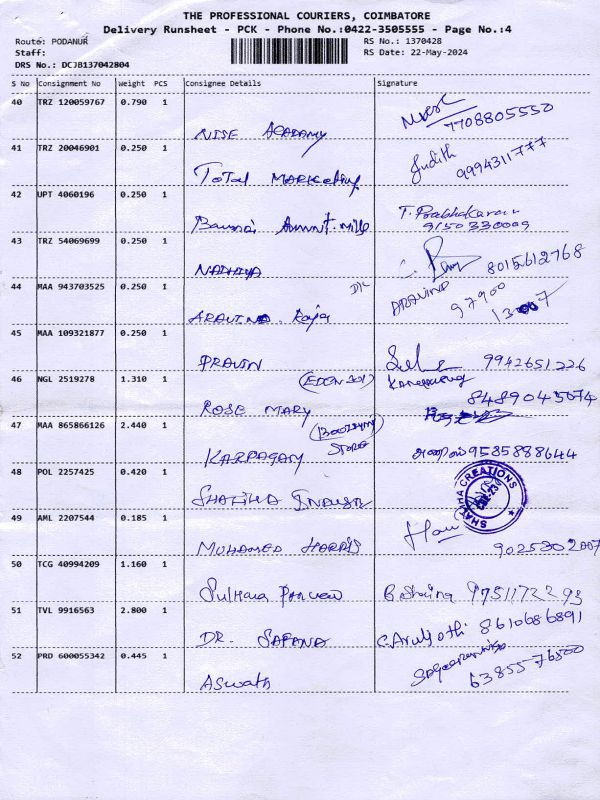 THE PROFESSIONAL COURIERS, COIMBATORE
Delivery Runsheet - PCK - Phone No.:0422-3505555 - Page No.:4
Route: PODANUR
RS No.: 1370428
Staff:
RS Date: 22-May-2024
DRS No.: DCJB137042804
S No Consignment No Weight PCS Consignee Details Signature
40 TRZ 120059767 0.790 1
NISE ACADAMY 7708805550
41 TRZ 20046901 0.250 1 Judith
Total MARKeting 9994311777
42 UPT 4060196 0.250 1 T. Prabhakaran
9150330009
43 TRZ 54069699 0.250 1
NADHIYA 8015612768
44 MAA 943703525 0.250 1 ARAVIND
ARAVIND Raja 97900
45 MAA 109321877 0.250 1
PRAVIN 9942651226
46 NGL 2519278 1.310 1
ROSE MARY 8489045074
47 MAA 865866126 2.440 1
STORE
KARPAGAM 9585888644
48 POL 2257425 0.420 1
SHATHA CREATIONS
49 AML 2207544 0.185 1
MUHAMED HARRIS 9025302007
50 TCG 40994209 1.160 1
51 TVL 9916563 2.800 1
DR. SAPANA C. Arul Jothi 8610686891
52 PRD 600055342 0.445 1
ASwath 6385576500